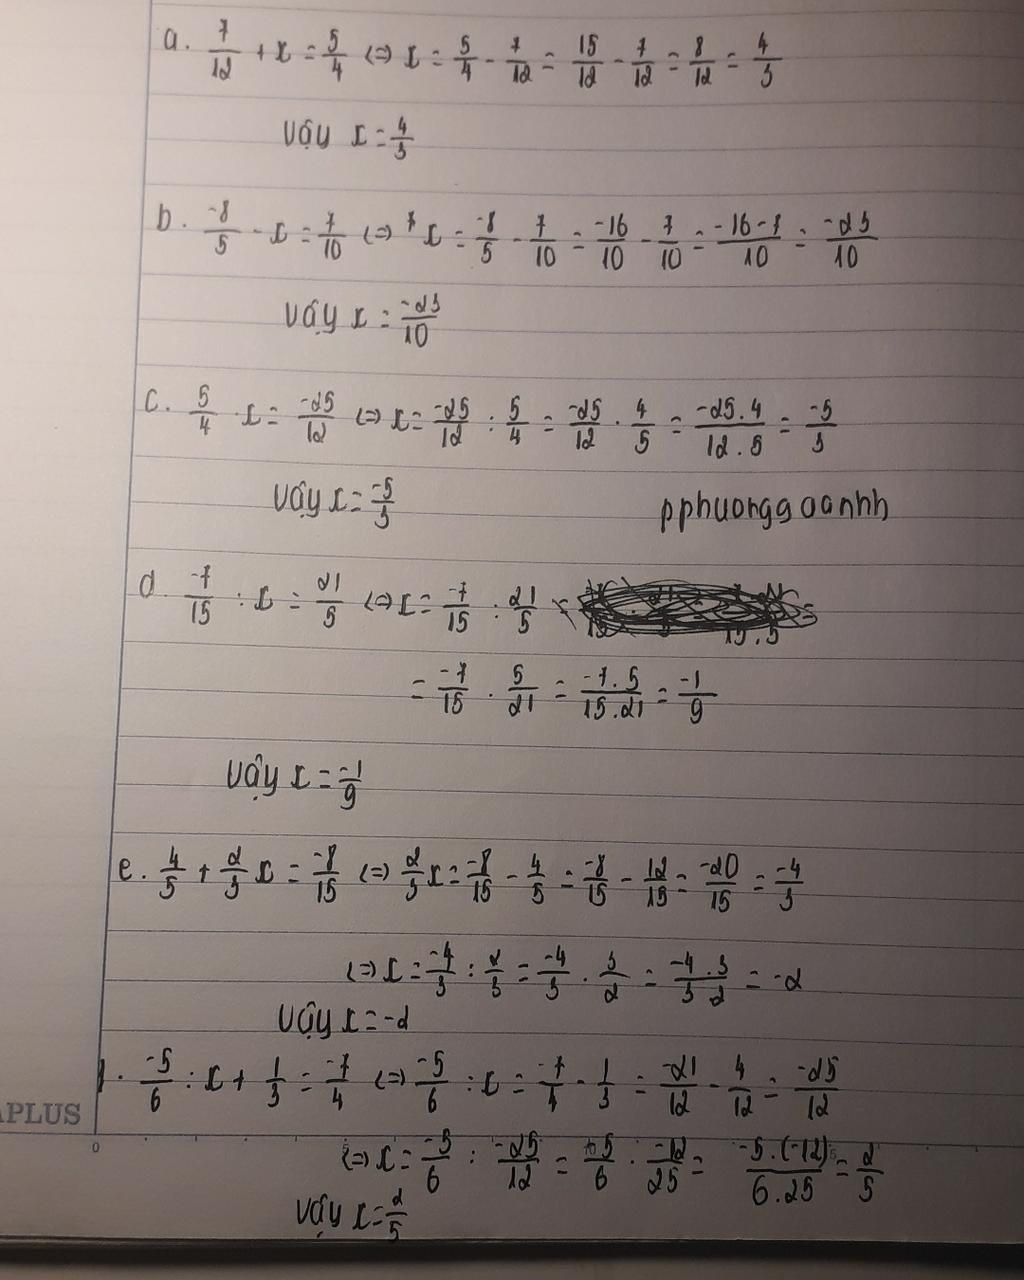 a. 7/12 + x = 5/4 <=> x = 5/4 - 7/12 = 15/12 - 7/12 = 8/12 = 4/3
Vậy x = 4/3
b. -8/5 - x = 7/10 <=> x = -8/5 - 7/10 = -16/10 - 7/10 = -16-7/10 = -23/10
Vậy x = -23/10
c. 5/4 . x = -25/12 <=> x = -25/12 : 5/4 = -25/12 . 4/5 = -25.4/12.5 = -5/3
Vậy x = -5/3
pphuongg oanhh
d. -7/15 : x = 21/5 <=> x = -7/15 : 21/5 =
= -7/15 . 5/21 = -7.5/15.21 = -1/9
Vậy x = -1/9
e. 4/5 + 2/3 x = -8/15 <=> 2/3 x = -8/15 - 4/5 = -8/15 - 12/15 = -20/15 = -4/3
<=> x = -4/3 : 2/3 = -4/3 . 3/2 = -4.3/3.2 = -2
Vậy x = -2
. -5/6 : x + 1/3 = -7/4 <=> -5/6 : x = -7/4 - 1/3 = -21/12 - 4/12 = -25/12
<=> x = -5/6 : -25/12 = -5/6 . -12/25 = -5.(-12)/6.25 = 2/5
Vậy x = 2/5
APLUS
0